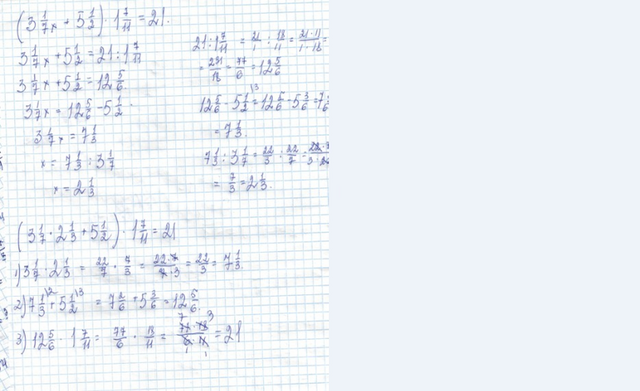 (3 1/7 x + 5 1/2) · 1 7/11 = 21.
3 1/7 x + 5 1/2 = 21 : 1 7/11
3 1/7 x + 5 1/2 = 12 5/6
3 1/7 x = 12 5/6 - 5 1/2.
3 1/7 x = 7 1/3
x = 7 1/3 : 3 1/7
x = 2 1/3
21 : 1 7/11 = 21/1 : 18/11 = 21·11/1·18 =
= 231/18 = 77/6 = 12 5/6
12 5/6 - 5 1/2 \3 = 12 5/6 - 5 3/6 = 7
= 7 1/3.
7 1/3 : 3 1/7 = 22/3 : 22/7 =
= 7/3 = 2 1/3.
(3 1/7 · 2 1/3 + 5 1/2) · 1 7/11 = 21
1) 3 1/7 · 2 1/3 = 22/7 · 7/3 = 22·7/7·3 = 22/3 = 7 1/3.
2) 7 1/3 \2 + 5 1/2 \3 = 7 2/6 + 5 3/6 = 12 5/6.
3) 12 5/6 · 1 7/11 = 77/6 · 18/11 = 77·18/6·11 = 21